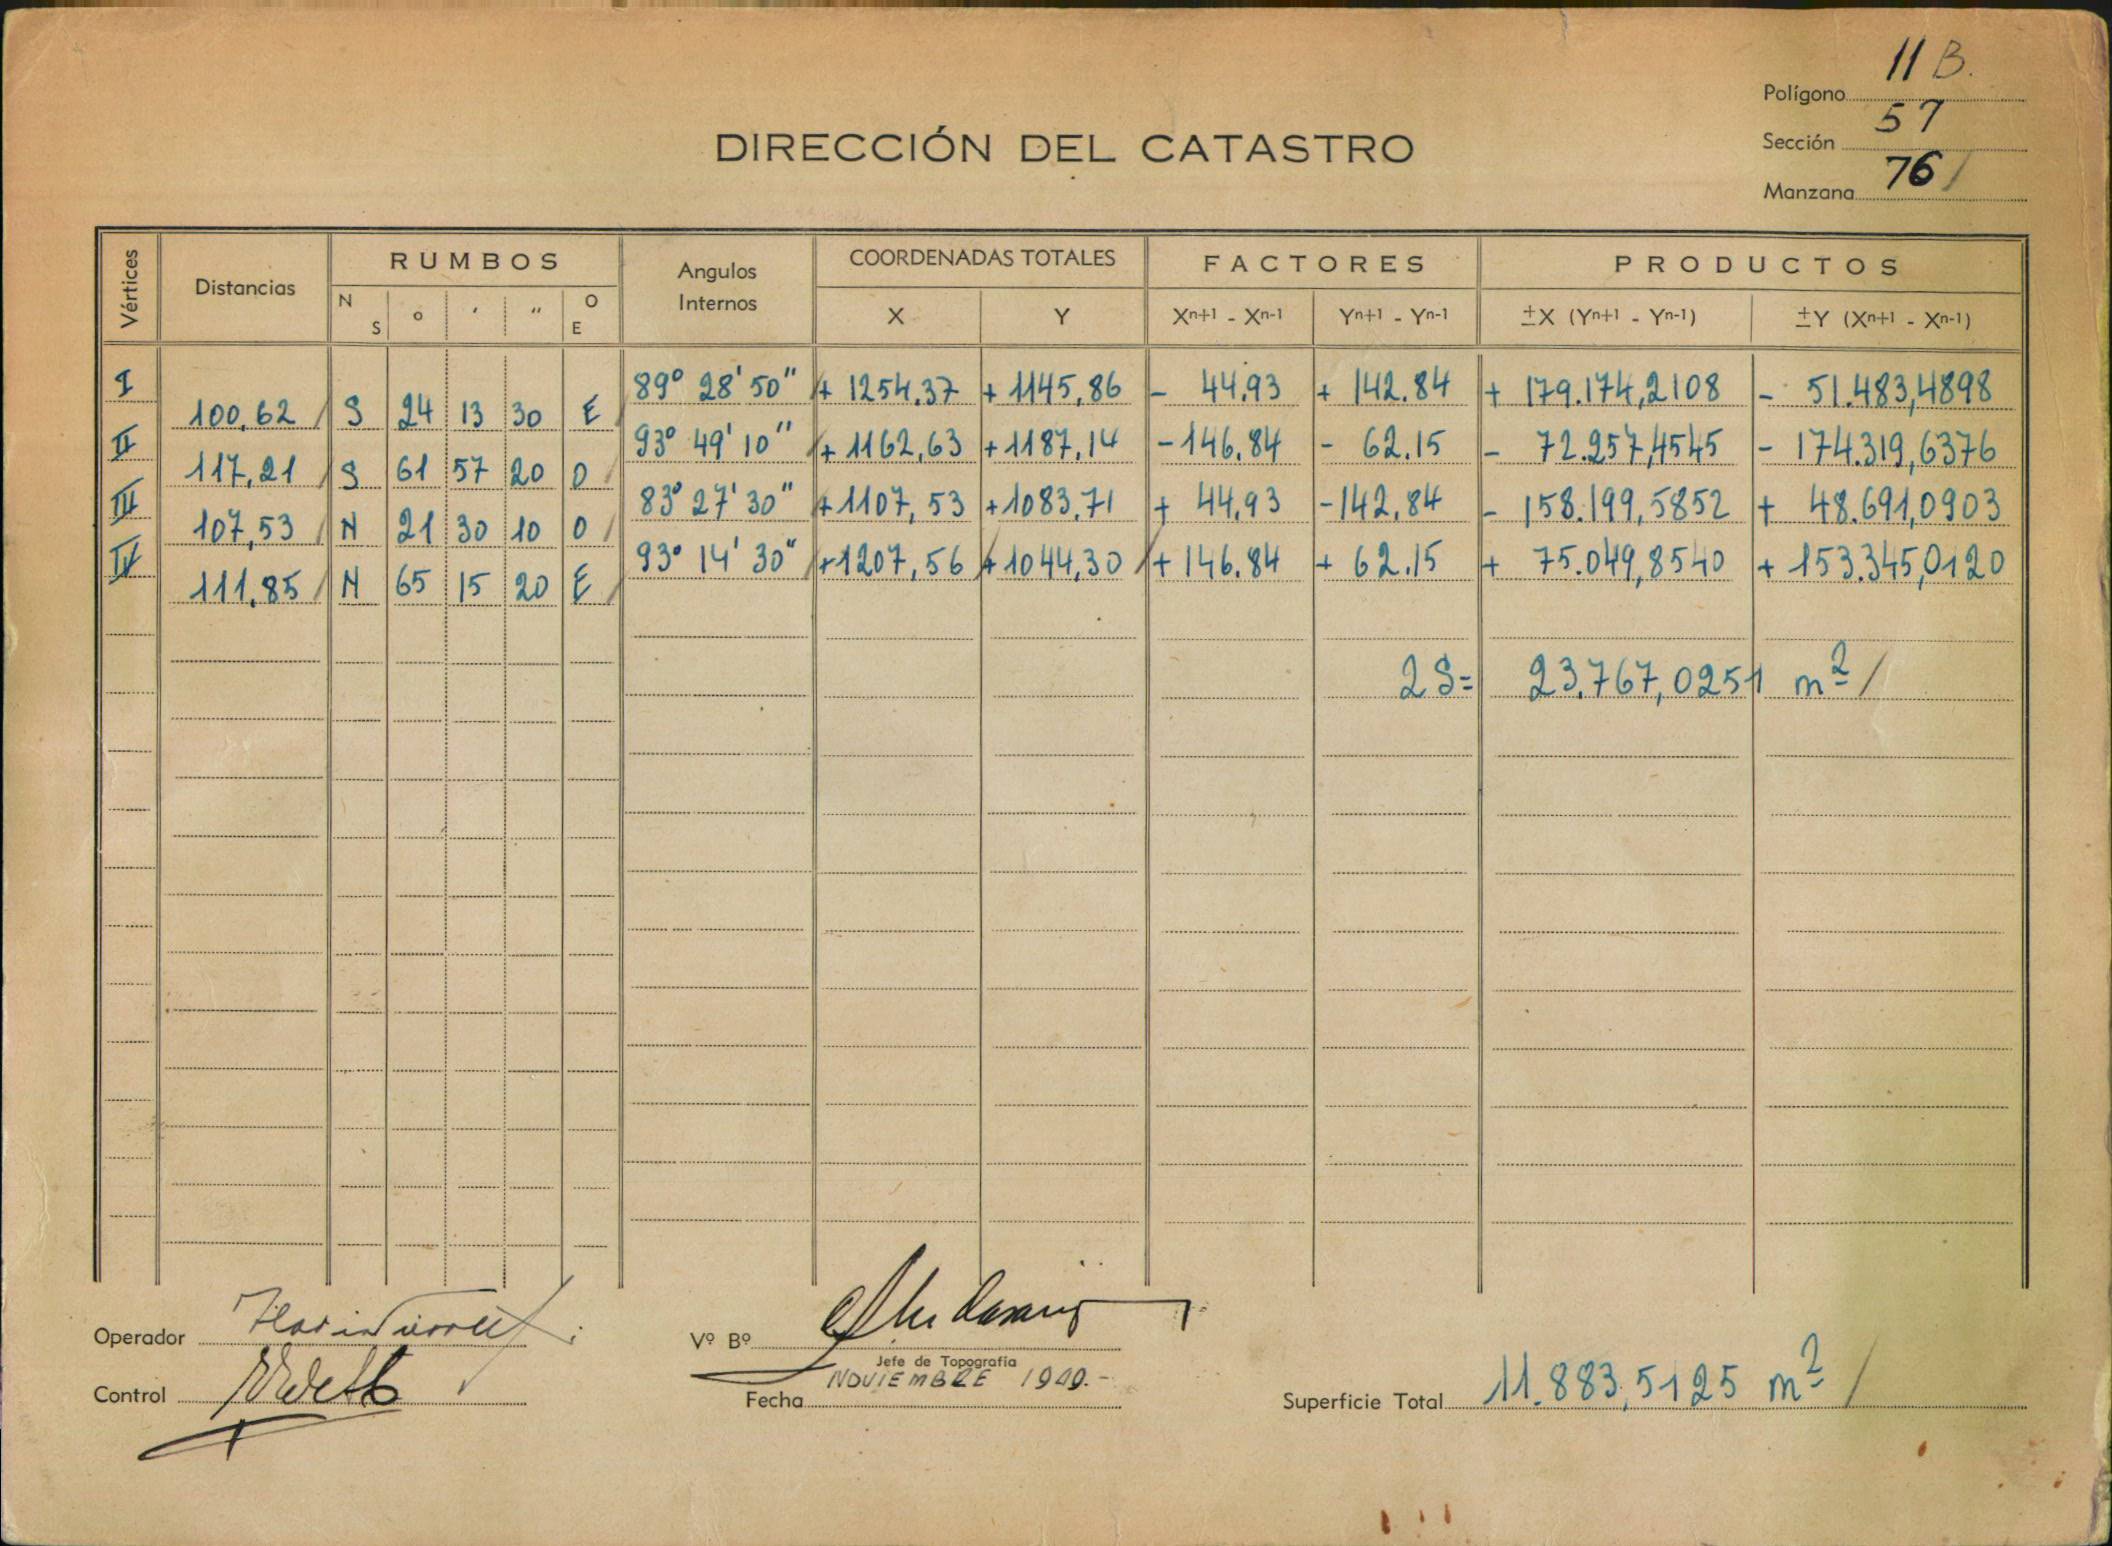 11 B.
Polígono
57
Sección
DIRECCIÓN DEL CATASTRO
76 /
Manzana
Vértices Distancias RUMBOS Angulos Internos COORDENADAS TOTALES FACTORES PRODUCTOS
N S o ′ ″ O E X Y Xn+1 - Xn-1 Yn+1 - Yn-1 ±X (Yn+1 - Yn-1) ±Y (Xn+1 - Xn-1)
I 89° 28' 50" + 1254.37 + 1145,86 - 44.93 + 142.84 + 179.174,2108 - 51.483,4898
100.62 / S 24 13 30 E /
II 93° 49' 10" + 1162,63 + 1187,14 - 146.84 - 62.15 - 72.257,4545 - 174.319,6376
117,21 / S 61 57 20 O /
III 83° 27' 30" + 1107,53 + 1083,71 + 44.93 - 142.84 - 158.199,5852 + 48.691,0903
107,53 / N 21 30 10 O /
IV 93° 14' 30" + 1207,56 + 1044,30 + 146.84 + 62.15 + 75.049,8540 + 153.345,0120
111.85 / N 65 15 20 E /
2S= 23.767,0251 m² /
Operador
Vº Bº
Jefe de Topografía
Control
NOVIEMBRE 1949.-
Fecha
Superficie Total 11.883,5125 m² /